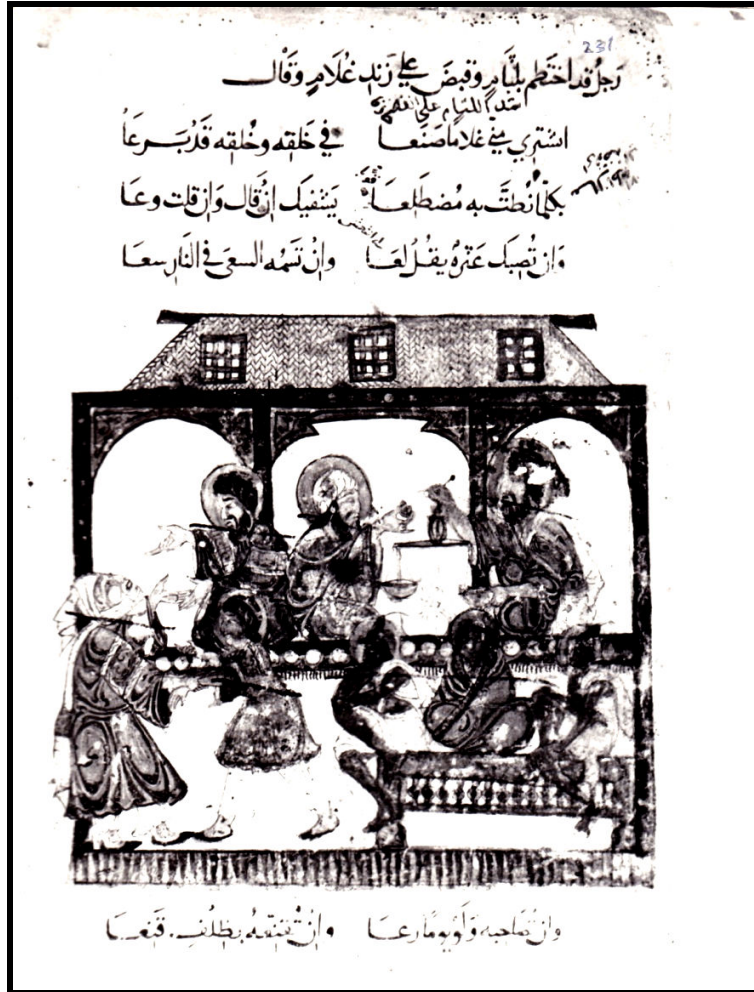 231
رَجلُ قد اختَطم بلِثَامٍ وقبضَ علي زَندِ غُلَامٍ وقَالَ
اشتري مني غلاما صَنَعا في خَلقه وخُلقه قَد بَرعَا
بكلمَا نُطتَ به مُضطَلعَا يَشفيك انْ قَال وَانْ قلت وعَا
وَان تُصبكَ عَثرةٌ يقُل لعَا وانْ تَسُمه السعيَ في النَار سعَا
وان تُصَاحبه وَلَو يومًا رعَا وانْ تُقنعَهُ بظلفٍ قَنعَا